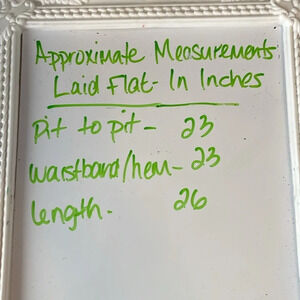 Approximate Measurements
Laid Flat- In Inches
pit to pit- 23
waistband/hem- 23
length- 26